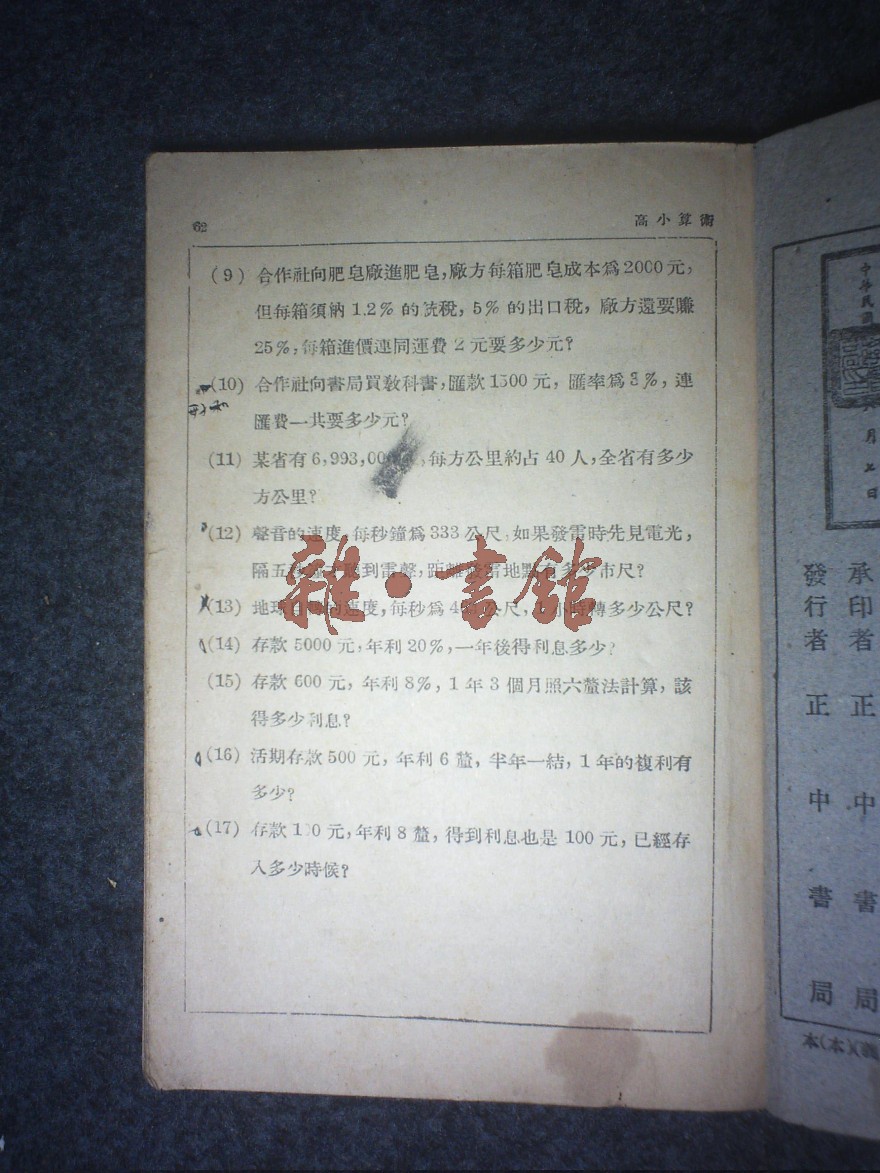 62
高小算術
(9) 合作社向肥皂廠進肥皂，廠方每箱肥皂成本爲2000元，
但每箱須納 1.2% 的統稅，5% 的出口稅，廠方還要賺
25%，每箱進價連同運費 2 元要多少元？
(10) 合作社向書局買敎科書，匯款 1500 元，匯率爲 %，連
匯費一共要多少元？
(11) 某省有 6,993,00 ，每方公里約占 40 人，全省有多少
方公里？
(12) 聲音的速度，每秒鐘爲 333 公尺，如果發雷時先見電光，
隔五 到雷聲，距離發雷地點有多少市尺？
(13) 地球 的速度，每秒爲 4 公尺， 小時轉多少公尺？
(14) 存款 5000 元，年利 20%，一年後得利息多少？
(15) 存款 600 元，年利 8%，1 年 3 個月照六釐法計算，該
得多少利息？
(16) 活期存款 500 元，年利 6 釐，半年一結，1 年的複利有
多少？
(17) 存款 100 元，年利 8 釐，得到利息也是 100 元，已經存
入多少時候？
雜·書館
中華民國
月 日
承印者 正中書局
發行者 正中書局
本(本)